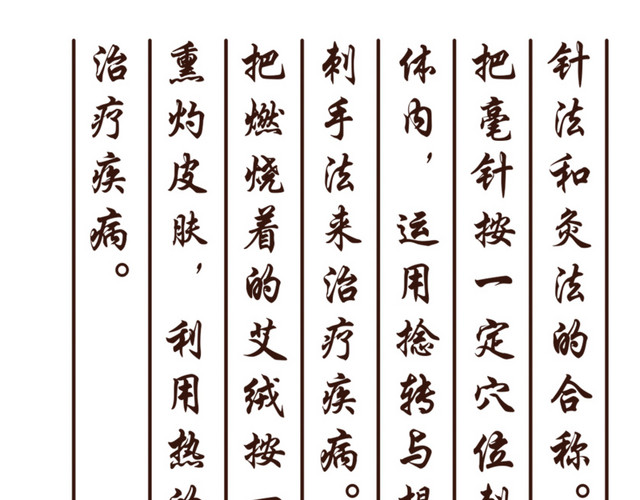 针法和灸法的合称。
把毫针按一定穴位
体内，运用捻转与
刺手法来治疗疾病。
把燃烧着的艾绒按
熏灼皮肤，利用热
治疗疾病。